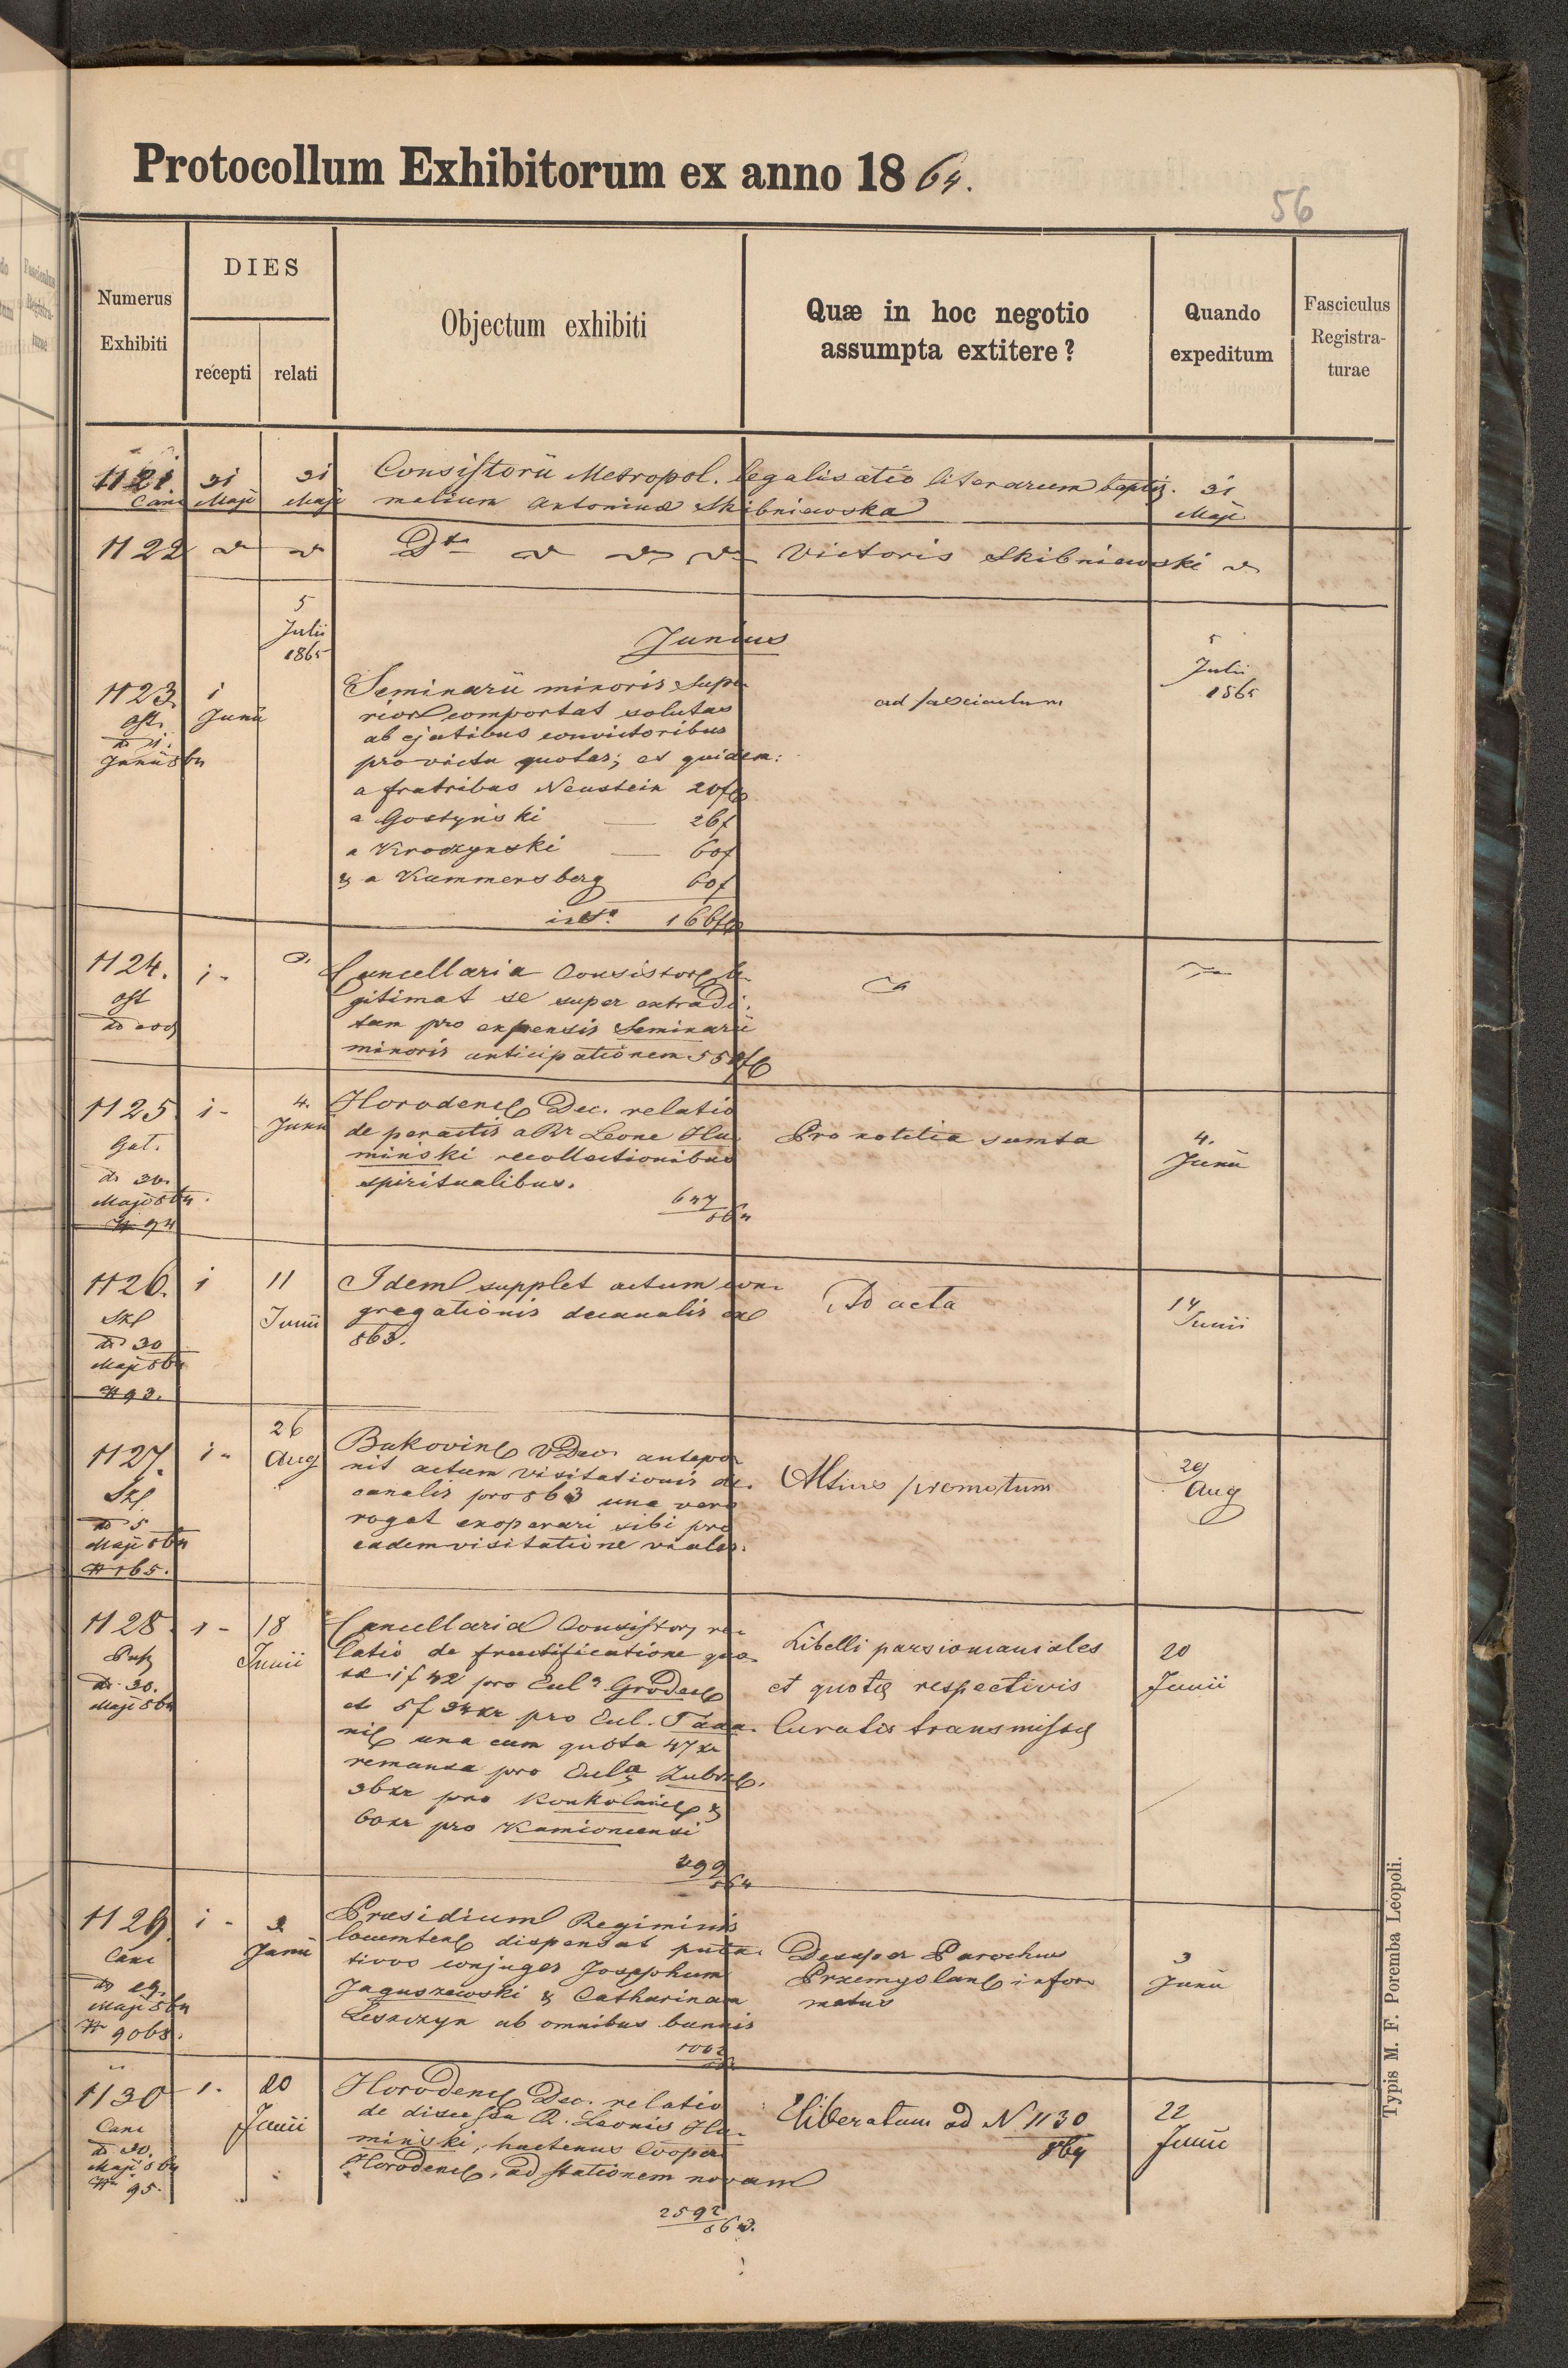 Protocollum Exhibitorum ex anno 1864.
56
Numerus Exhibiti
DIES
recepti
relati
Objectum exhibiti
Quæ in hoc negotio
assumpta extitere?
Quando
expeditum
Fasciculus
Registra-
turae
1121 31 31 Consistorii Metropol. legalisatio literarum baptis- 31
Canc Maji Maji malium Antoninae Skibniewska Maji
1122 Dto Victoris Skibniewski
5
Julii
1865
Junius
5
Julii
1865
1123.
Ost.
Junii 864
1
Junii
Seminarii minoris supe-
rior comportat solutas
ab ejatibus convictoribus
pro victu quotas; et quidem:
a fratribus Neustein 20f
a Gostyński — 26f
a Kroczynski — 60f
& a Kummersberg 60f
166f
ad fasciculum
1124.
Ost
1 -
Cancellaria Consistor le-
gitimat se super extradi-
tam pro expensis Seminarii
minoris anticipationem
1125.
Gat.
dd 30.
Maji 864.
N 94
1 -
4.
Junii
Horodenc Dec. relatio
de peractis a Rr Leone Hu-
minski recollectionibus
spiritualibus.
647
864
Pro notitia sumta
4.
Junii
1126.
Skl
dd 30
Maji 864
N 93.
1
11
Junii
Idem supplet actum con-
gregationis decanalis ex
863.
Ad acta
14
Junii
1127.
Skl
dd 5
Maji 864
N 165.
1 -
26
Aug
Bukovin VDec. antepo-
nit actum visitationis de-
canalis pro 863 una vero
rogat exoperari sibi pro
eadem visitatione viales.
Altius promotum
29
Aug
1128.
dd 30.
Maji 864
1 -
18
Junii
Cancellaria Consistor re-
latio de fructificatione quo-
1f 42 pro Eccl. Grodec
et 5f 34xr pro Eccl.
una cum quota 47 xr
remansa pro Eccla
36xr pro Konkolnic &
60xr pro Kamioncensi
499
864
Libelli parsiomaniales
et quotae respectivis
Curatis transmissae
20
Junii
1129.
Canc
Maji 864
N 9063.
1 -
2
Junii
Praesidium Regiminis
locumten dispensat puta-
tivos conjuges Josephum
Jaguszewski & Catharinam
Leszczyn ab omnibus bannis
Desuper Parochus
Przemyslan infor-
matus
3
Junii
1130
Canc
dd 30.
Maji 864
N 95.
1.
20
Junii
Horodenc Dec. relatio
de discessu R. Leonis Hu-
minski, hactenus Cooper
Horodenc, ad stationem novam
2592
863.
Eliberatum ad N 1130
864
22
Junii
Typis M. F. Poremba Leopoli.